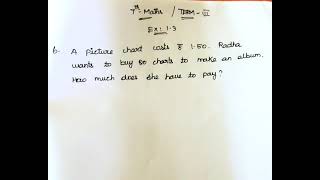 7th Maths / TERM - III
Ex: 1.3
6. A picture chart costs ₹ 1.50. Radha
wants to buy 20 charts to make an album.
How much does she have to pay?